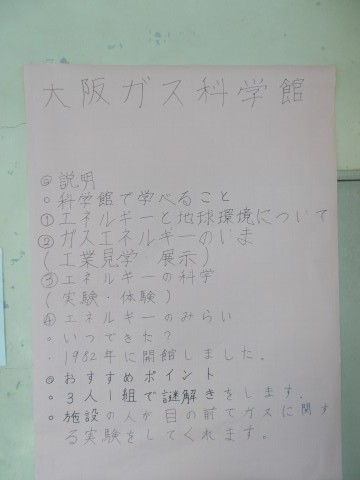 大阪ガス科学館
◎説明
○科学館で学べること
①エネルギーと地球環境について
②ガスエネルギーのいま
(工業見学 展示)
③エネルギーの科学
(実験・体験)
④エネルギーのみらい
○いつできた?
・1982年に開館しました.
◎おすすめポイント
○3人1組で謎解きをします.
○施設の人が目の前でガスに関す
る実験をしてくれます.